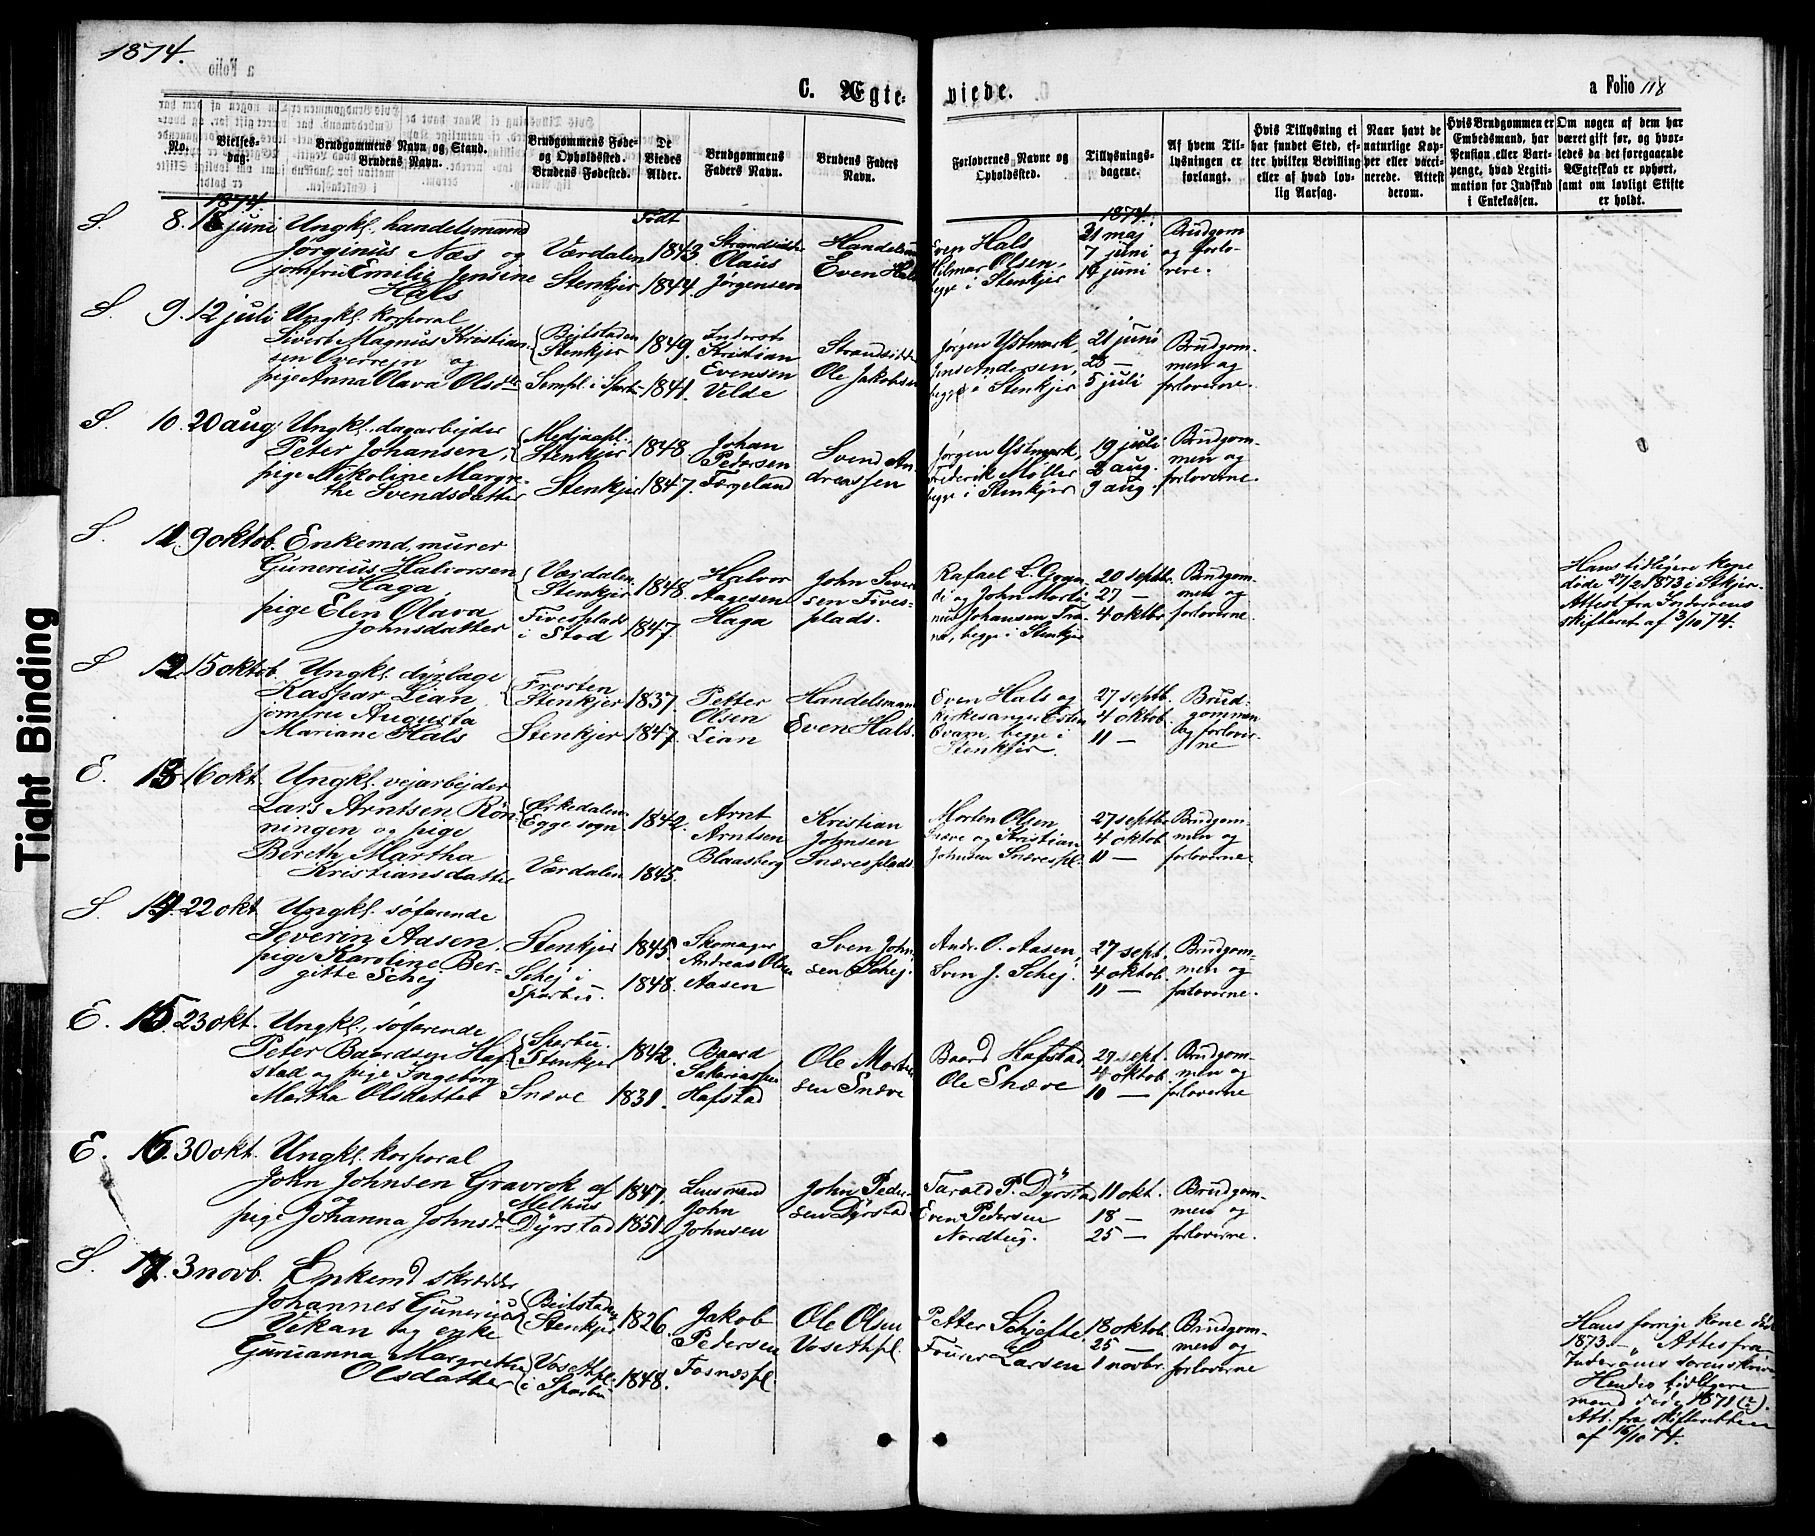 1874.
C. Ægte- viede.
a Folio 118
No.
Vielses-
dag:
Brudgommens Navn og Stand.
Brudens Navn.
Brudgommens Føde-
og Opholdssted.
Brudens Fødested.
De
Viedes
Alder.
Brudgommens
Faders Navn.
Brudens Faders
Navn.
Forlovernes Navne og
Opholdssted.
Tillysnings-
dagene.
Af hvem Til-
lysningen er
forlangt.
Hvis Tillysning ei
har fundet Sted, ef-
ter hvilken Bevilling
eller af hvad lov-
lig Aarsag.
Naar havt de
naturlige Kop-
per eller vacci-
nerede. Attest
derom.
Hvis Brudgommen er
Embedsmand, har
Pension eller Vart-
penge, hvad Legiti-
mation for Indskud
i Enkekassen.
Om nogen af dem har
været gift før, og hvor-
ledes da det foregaaende
Ægteskab er ophørt,
samt om lovligt Skifte
er holdt.
1874.
Født
1874.
S. 8. 18 juni Ungkl. handelsmand
Jørginius Næs og
jomfru Emilie Jensine
Hals
Værdalen 1843.
Stenkjer 1844.
Strandsidder
Olaus
Jørgensen
Handelsm
Even Hals
Even Hals
Hilmar Olsen,
begge i Stenkjer
31 maj
7 juni
14 juni
Brudgom
og forlo-
vere.
S. 9. 12 juli Ungkl. korporal
Sivert Magnus Kristian-
sen Overrejn og
pige Anna Olava Olsdtr
Beitstaden
Stenkjer 1849.
Sempl. i Sparb 1841.
Inderst
Kristian
Evensen
Velde
Strandsidder
Ole Jakobsen
Jørgen Ystmark,
Jens Andersen,
begge i Stenkjer
21 juni
28 —
5 juli
Brudgom-
men og
forloverne.
S. 10. 20 aug. Ungkl. dagarbejder
Peter Johansen,
pige Nikoline Margre-
the Svendsdatter
Medjaapl.
Stenkjer 1848.
Stenkjer 1847.
Johan
Pedersen
Færgeland
Svend An-
dreassen
Jørgen Ystmark,
Frederik Møller
begge i Stenkjer
19 juli
2 aug.
9 aug.
Brudgom-
men og
forloverne.
S. 11. 9 oktob. Enkemd, murer
Gunerius Halvorsen
Haga,
pige Elen Olava
Johnsdatter
Værdalen
Stenkjer 1848.
Tivesplads
i Stod 1847.
Halvor
Aagesen
Haga
John Siver-
sen Tives-
plads.
Rafael L. Gran-
di og John Morti-
nus Johansen Tra-
na, begge i Stenkjer
20 septb.
27 —
4 oktbr.
Brudgom-
men og
forloverne.
Hans tidligere kone
døde 27/2 1873 i Stkjer.
Attest fra Inderøens
skifteret af 3/10 74.
S. 12. 15 oktob. Ungkl. dyrlæge
Kaspar Lian,
jomfru Augusta
Mariane Hals
Frosten
Stenkjer 1837.
Stenkjer 1847.
Petter
Olsen
Lian
Handelsmand
Even Hals.
Even Hals og
kirkesanger Esten
Qvam, begge i
Stenkjer.
27 septb.
4 oktob.
11 —
Brud-
gommen
og forlover-
ne
E. 13. 16 okt. Ungkl. vejarbejder
Lars Arntsen Røn-
ningen og pige
Bereth Martha
Kristiansdatter
Ørkedalen
Egge sogn. 1842.
Værdalen 1845.
Arnt
Arntsen
Blaasberg
Kristian
Johnsen
Snævesplads
Morten Olsen
Snæve og Kristian
Johnsen Snævespl.
27 septb.
4 oktob.
11 —
Brudgom-
men og
forloverne.
S. 14. 22 okt Ungkl. søfarende
Severin Aasen,
pige Karoline Ber-
gitte Schej
Stenkjer 1845.
Schej i
Sparbu. 1848.
Skomager
Andreas Olsen
Aasen
Sven John-
sen Schej.
Andr. O. Aasen,
Sven J. Schej.
27 sept.
4 oktob.
11 —
Brudgom-
men og
forloverne.
E. 15. 23 okt. Ungkl., søfarende
Peter Baardsen Haf-
stad og pige Ingeborg
Martha Olsdatter
Sparbu.
Stenkjer 1842.
Snæve 1831.
Baard
Sakariassen
Hafstad
Ole Morten-
sen Snæve
Baard Hafstad
Ole Snæve
27 sept.
4 oktob.
10 —
Brudgom-
men og
forloverne
E. 16. 30 okt. Ungkl. korporal
John Johnsen Gravrok af
og Melhus
pige Johanna Johnsd. Dyrstad
1847.
1851.
Lensmand
John
Johnsen
John Peder-
sen Dyrstad
Tarald P. Dyrstad
Even Pedersen
Nordtug.
11 okt.
18 —
25 —
Brudgom-
men og
forloverne.
S. 17. 3 novb. Enkemd skrædder
Johannes Gunerius
Vekan og enke
Guruanna Margrethe
Olsdatter
Beitstaden
Stenkjer 1826.
Vosethpl.
i Sparbu 1848.
Jakob
Pedersen
Fosnæspl.
Ole Olsen
Vosethpl.
Petter Schjefte
Fourer Larsen
18 oktob.
25 —
1 novbr.
Brudgom-
men og
forloverne
Hans forrige kone død
1873. — Attes fra
Inderøens sorenskriv
Hendes tidligere
mand døde 1871 (?).
Att. fra skifteretten
af 16/10 74.
Tight Binding